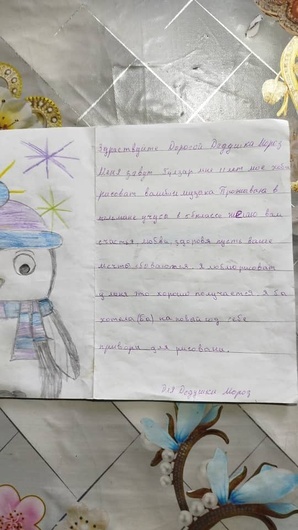 Здраствуйте Дорогой Дедушка Мороз
Меня зовут Гулзар мне 11 лет мое хоби
рисовать вашый музыка Проживаю в
учусь в 6 классе желаю вам
счастья любви здоровя пусть ваше
мечты сбоваются. Я люблю рисовать
у меня это хорошо получается. Я бы
хотела (ба) на новый год себе
прибора для рисована.
Для Дедушки Мороз